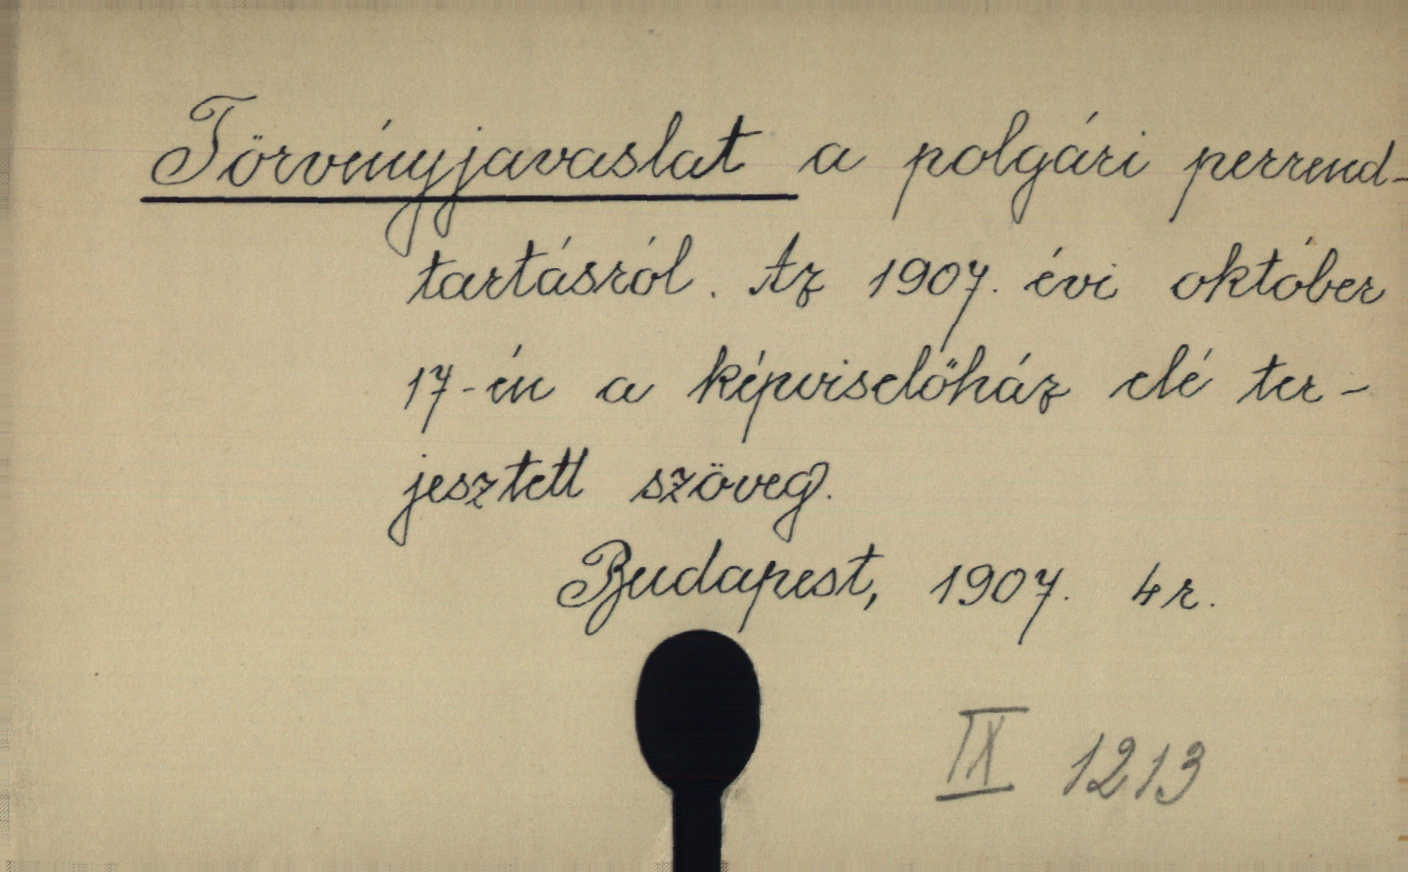 Törvényjavaslat a polgári perrend-
tartásról. Az 1907. évi október
17-én a képviselőház elé ter-
jesztett szöveg.
Budapest, 1907. 4r.
IX 1213